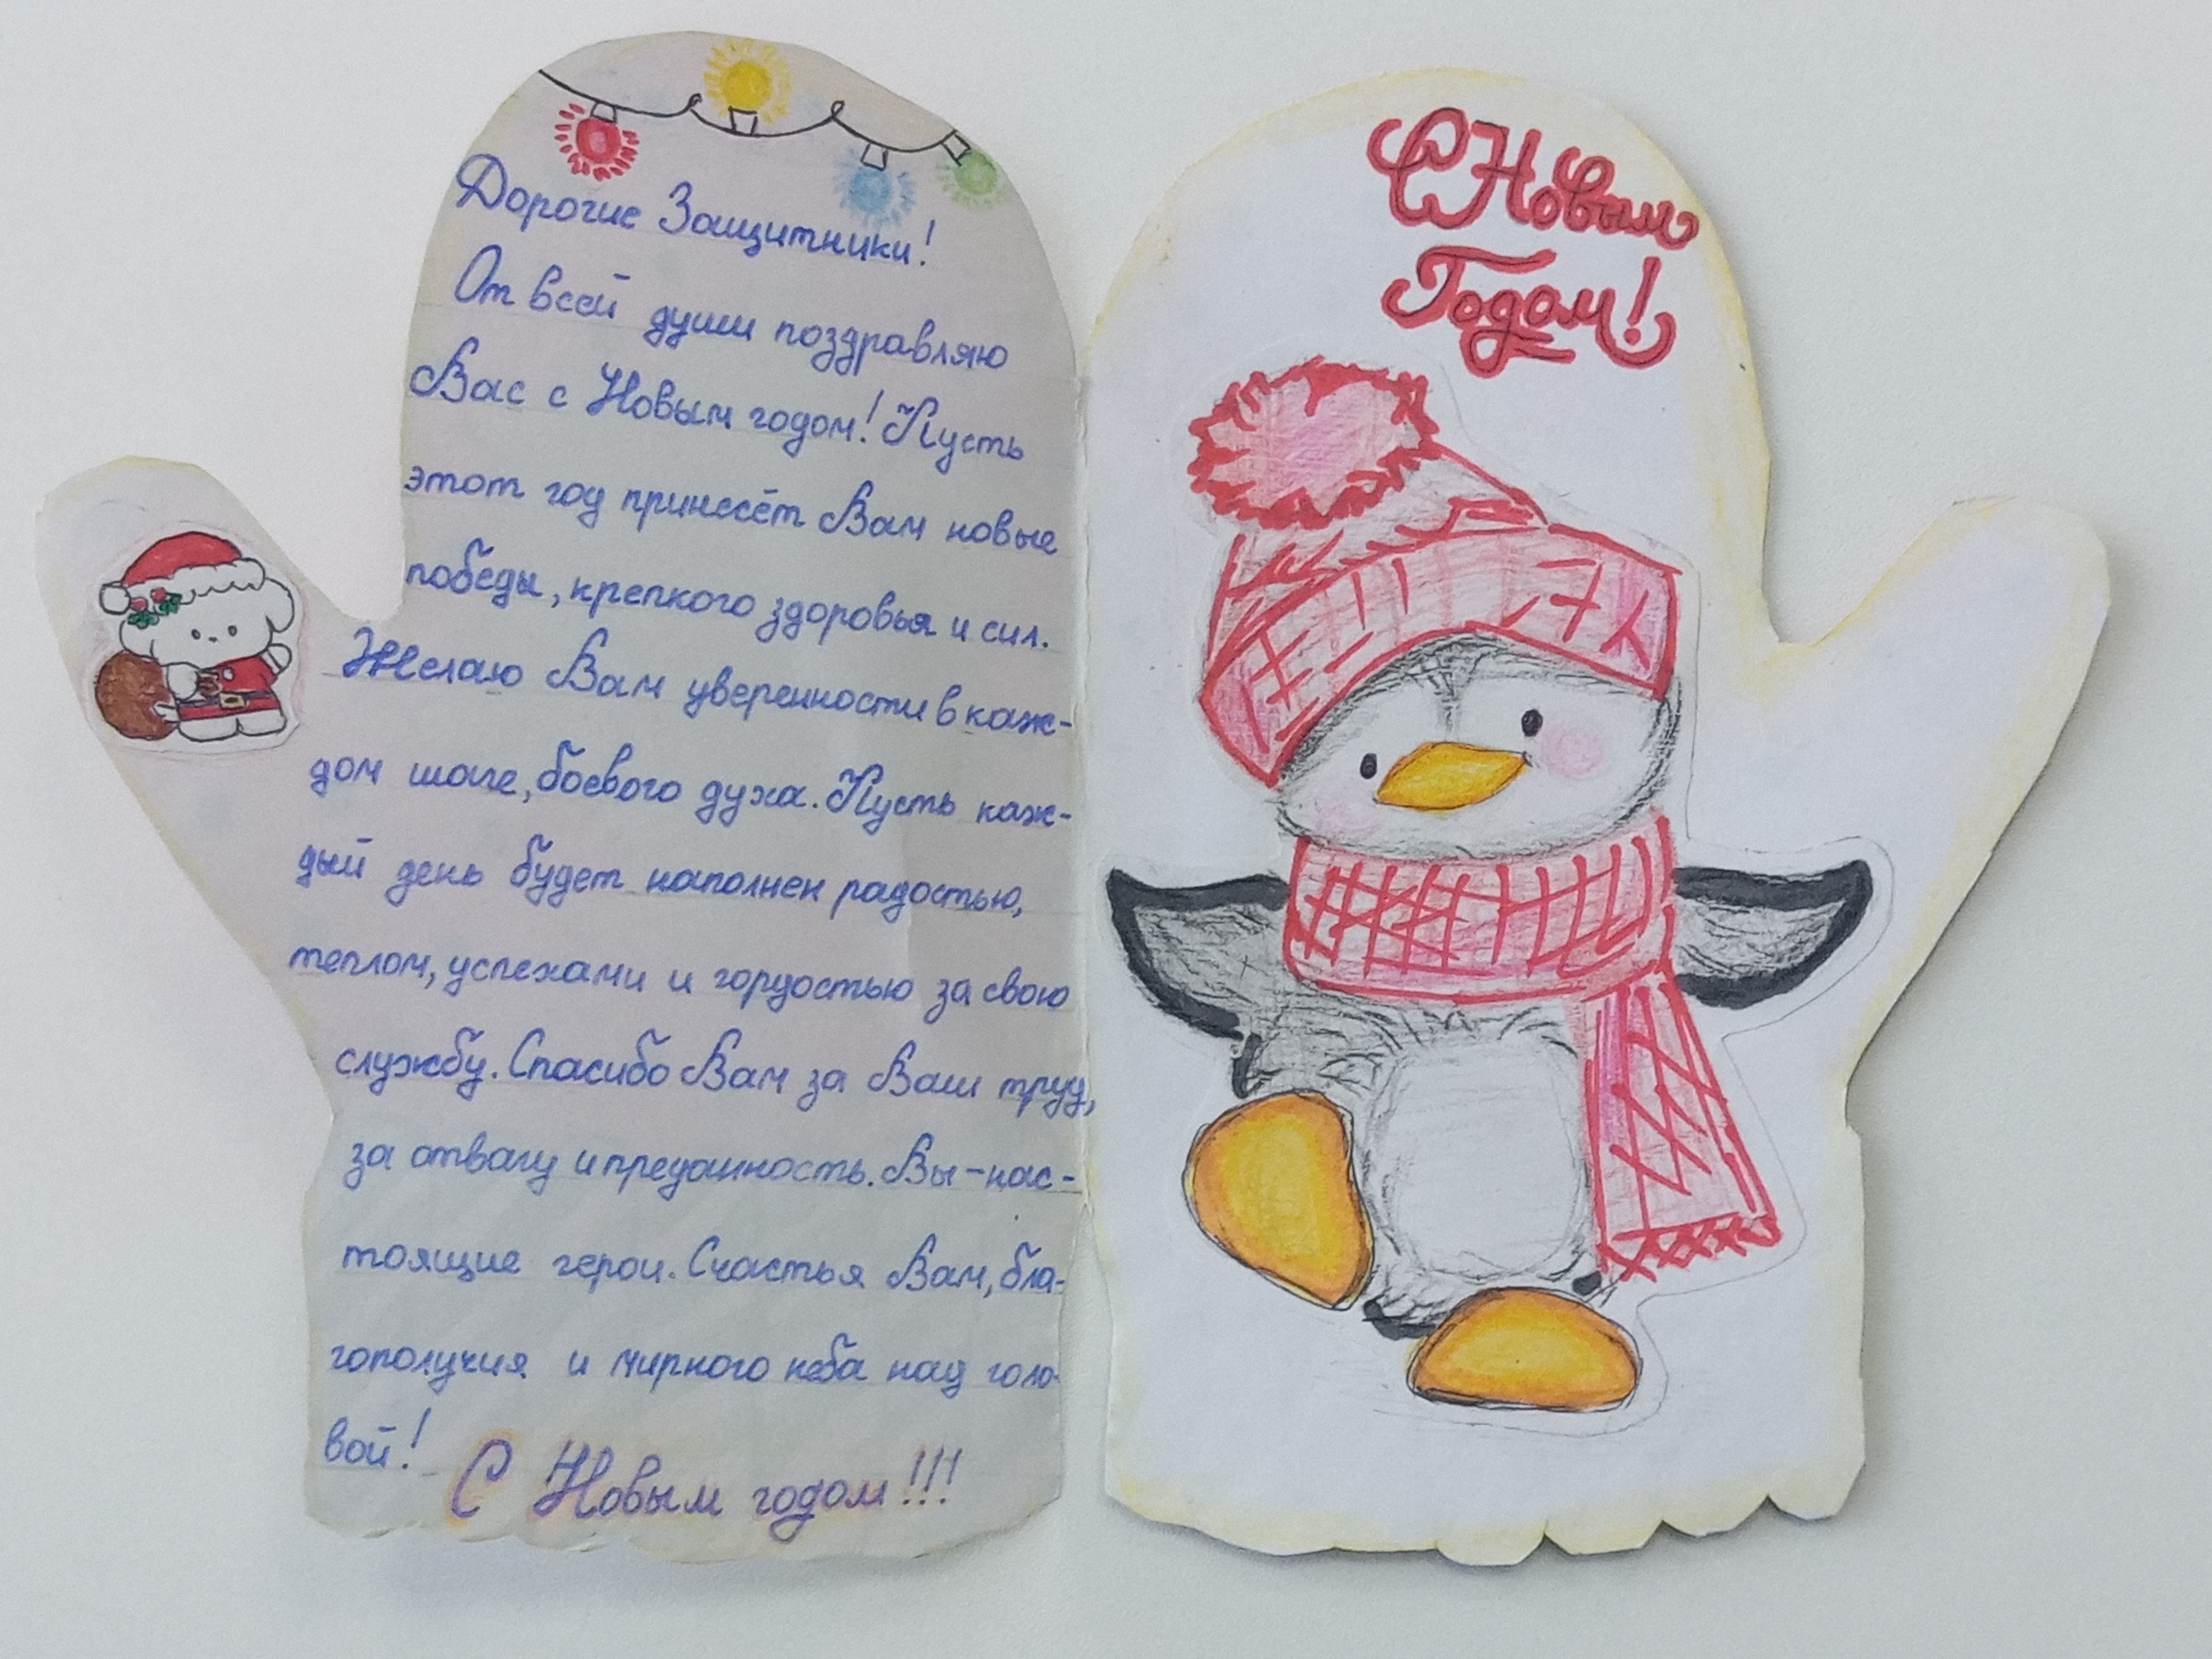 Дорогие Защитники!
От всей души поздравляю
Вас с Новым годом! Пусть
этот год принесёт Вам новые
победы, крепкого здоровья и сил.
Желаю Вам уверенности в каж-
дом шаге, боевого духа. Пусть каж-
дый день будет наполнен радостью,
теплом, успехами и гордостью за свою
службу. Спасибо Вам за Ваш труд,
за отвагу и преданность. Вы - нас-
тоящие герои. Счастья Вам, бла-
гополучия и мирного неба над голо-
вой!
С Новым годом!!!
С Новым
Годом!